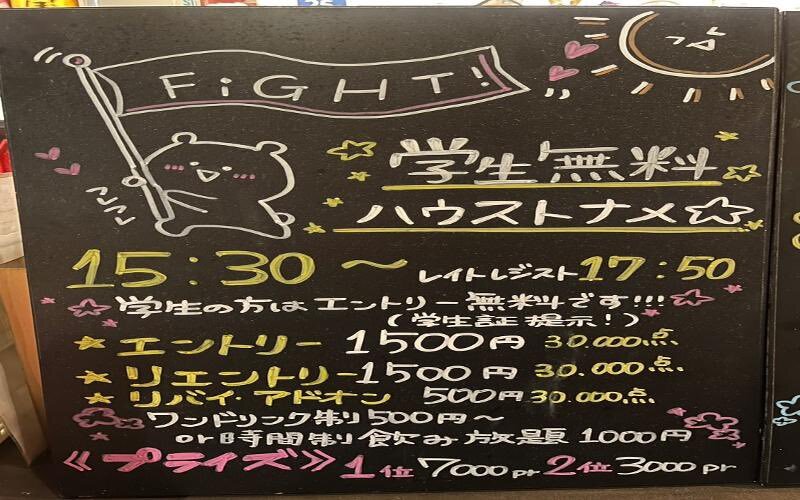 FiGHT!
学生無料
ハウストナメ☆
15:30～ レイトレジスト17:50
☆学生の方はエントリー無料です!!!☆
(学生証提示!)
★エントリー 1500円 30.000点
★リエントリー1500円 30.000点
★リバイ・アドオン 500円 30.000点
ワンドリンク制500円～
or 時間制飲み放題1000円
《プライズ》1位7000pr 2位3000pr